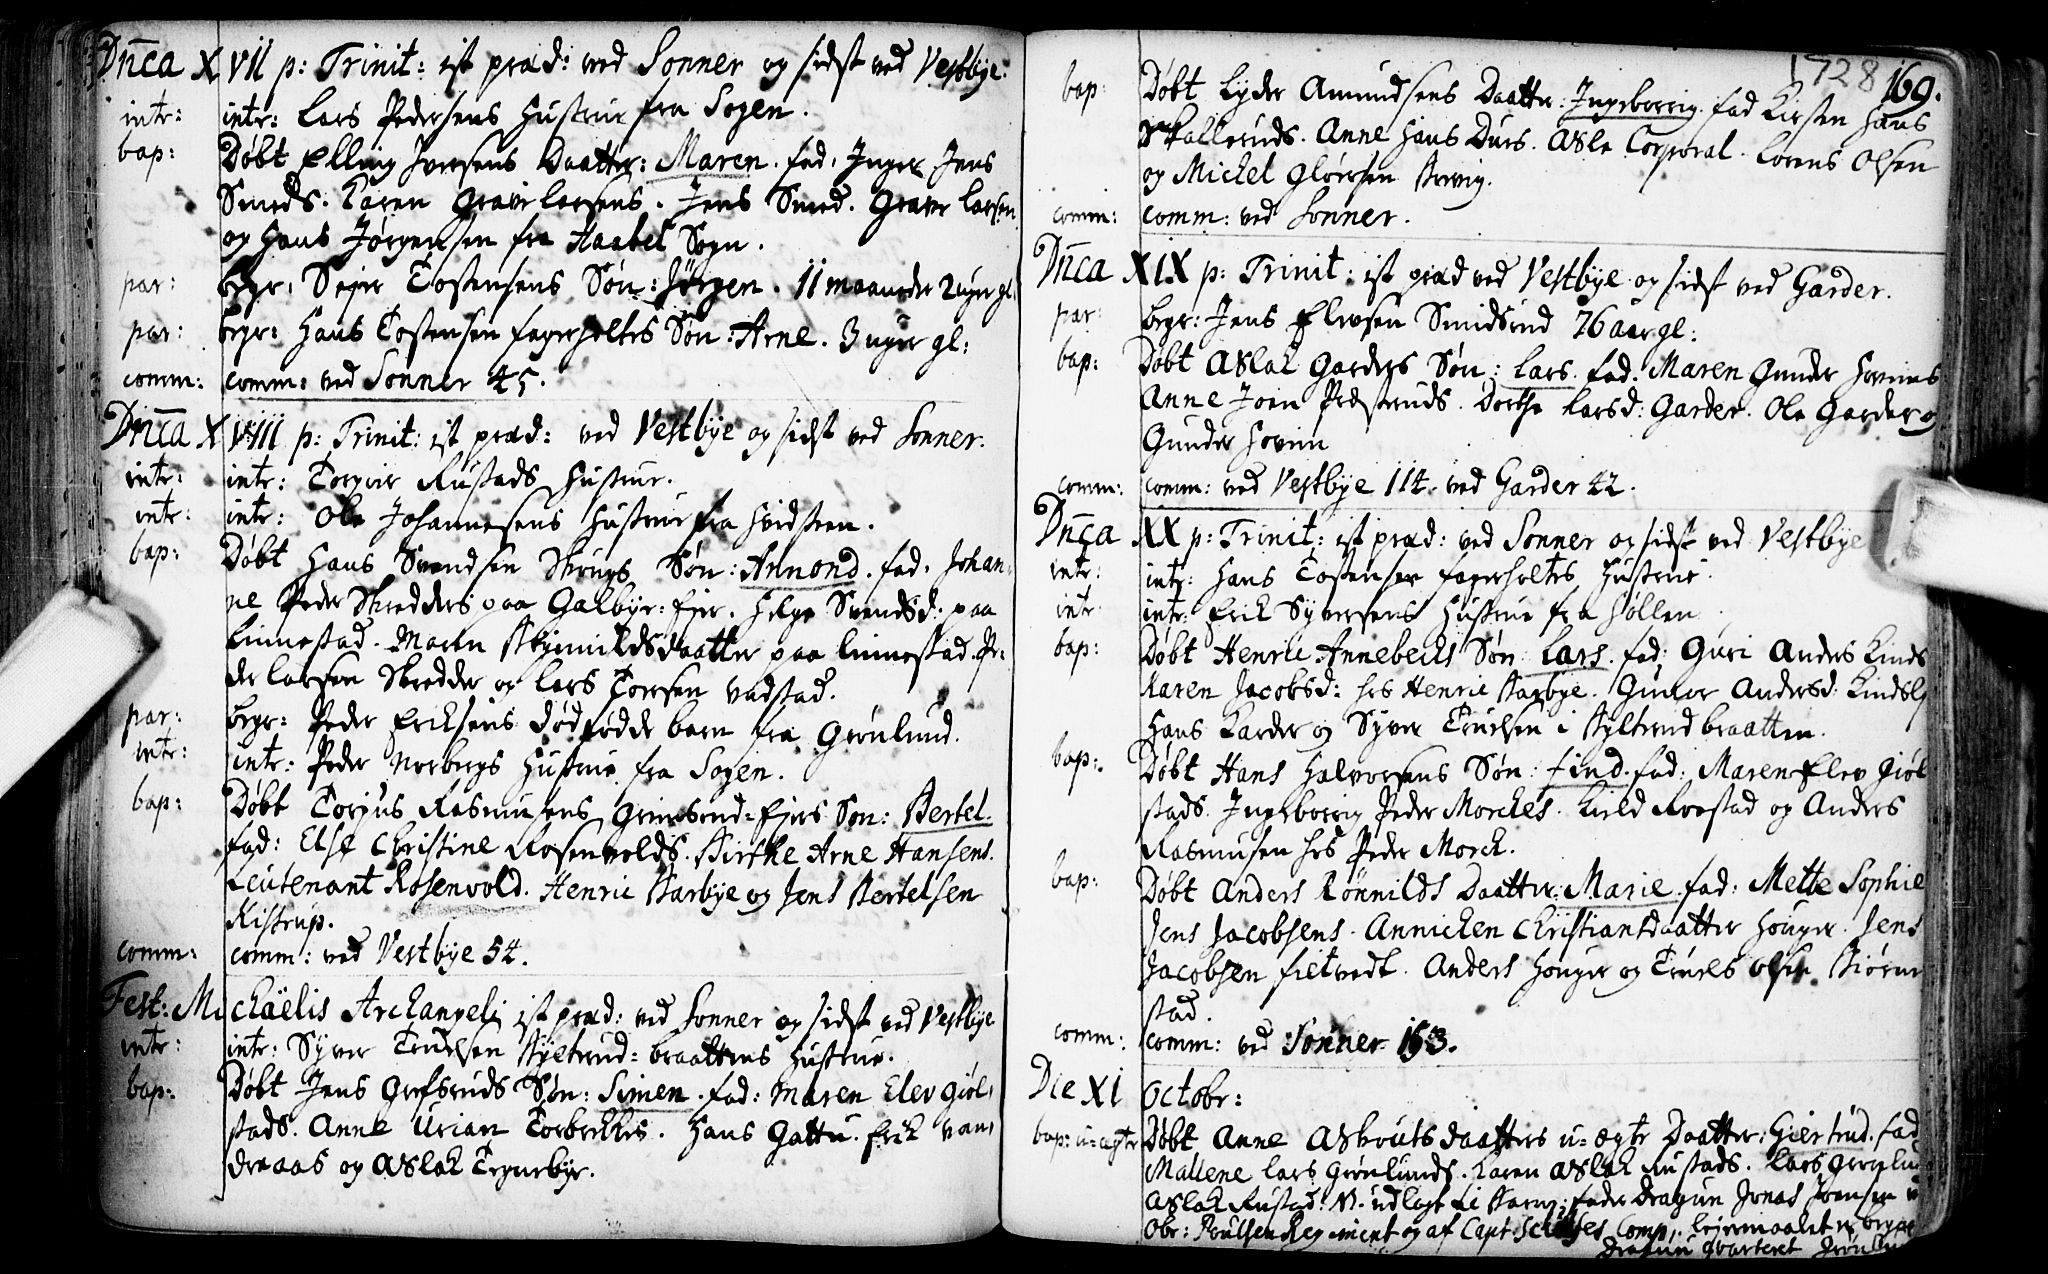 Dn̄ca XVII p: Trinit: ist præd: ved Sonner og sidst ved Vestbye.
intr: intr: Lars Pedersens Hustrue fra Sogen.
bap: Døbt Elling Iversens Daatter: Maren. fad. Inger Jens
Smeds. Karen Graver Larsens. Jens Smed. Graver Larsen
og Hans Jørgensen fra Haabel Sogn.
par: begr: Sejer Tostensens Søn: Jörgen. 11 maaneder 2 uger gl:
par: begr: Hans Tostensen Fagerholtes Søn: Arne. 3 uger gl:
comm: comm: ved Sonner 45.
Dn̄ca XVIII p: Trinit: ist præd: ved Vestbye og sidst ved Sonner.
intr: intr: Torger Rustads Hustrue.
intr: intr: Ole Johannesens Hustrue fra Hvidsteen.
bap: Døbt Hans Svendsen Skrugs Søn: Amond. fad. Johan-
ne Peder Skredders paa Galbye-Ejer. Helge Svendsd: paa
Linnestad. Maren Skjønnildsdaatter paa Linnestad. Pe-
der Larsen Skredder og Lars Toersen Vadstad.
par: begr: Peder Eriksens dødfødde barn fra Grønlund.
intr: intr: Peder Norbergs Hustrue fra Sogen.
bap: Døbt Torgus Rasmusens Grimsrud-Ejers Søn: Bertel.
fad: Else Christine Rosenvolds. Birthe Arne Hansens.
Leutenant Rosenvold. Henric Karbye og Jens Bertelsen
Kistrup.
comm: comm: ved Vestbye 54.
Fest: Michäelis Archangeli ist præd: ved Sonner og sidst ved Vestbye
intr: intr: Syver Truelsen Kyltrud-braattens Hustrue.
bap: Døbt Jens Grefsruds Søn: Simen. fad: Maren Elev Giøl-
stads. Anne Urian Torbekkes. Hans Gattu. Erik Van-
draas og Aslak Tegnebye.
1728 169.
bap: Døbt Lyder Amundsens Daatter: Ingeborrig. fad Kirsten Hans
Skalleruds. Anne Hans Dues. Asle Corporal. Lorens Olsen
og Michel Glöersen
comm: comm: ved Sonner.
Dn̄ca XIX p: Trinit: ist præd ved Vestbye og sidst ved Garder.
par: begr: Jens Elevsen Smidsrud 76 aar gl:
bap: Døbt Aslak Garders Søn: Lars. fad: Maren Gunder Hovins
Anne Joen Præsteruds. Dorthe Larsd: Garder. Ole Garder og
Gunder Hovin
comm: comm: ved Vestbye 114. ved Garder 42.
Dn̄ca XX p: Trinit: ist præd: ved Sonner og sidst ved Vestbye
intr: intr: Hans Tostensen Fagerholtes Hustrue.
intr: intr: Erik Syversens Hustrue fra Høllen
bap: Døbt Henric Annebechs Søn: Lars. fad: Guri Anders Kinds
Karen Jacobsd: hos Henric Karbye. Gunor Andersd: Kinds
Hans Karder og Syver Truelsen i Kyltrudbraatten.
bap: Døbt Hans Halvorsens Søn: Find. fad: Maren Elev Giøl-
stads. Ingeborrig Peder Morches. Kield Roestad og Anders
Rasmusen hos Peder Morck.
bap: Døbt Anders Rönnilds Daatter: Marie. fad: Mette Sophie
Jens Jacobsens. Annichen Christiansdaatter Houger. Jens
Jacobsen Fletvedt. Anders Houger og Truels Olsen Biørne-
stad.
comm: comm: ved Sonner 153.
Die XI Octobr:
bap: u-ægte Døbt Anne Askoutsdaatters u-ægte Daatter: Giertrud. fad
Mallene Lars Grønlunds. Karen Aslak Rustads. Lars Grønlund
Aslak Rustad. N. udlagt til Barne-fader Dragun Jonas Joensen
Obr: Poulsen Regiment og af Capt: Comp. Lejermaalet er begaaet
Dragun qvarteret Grönlund